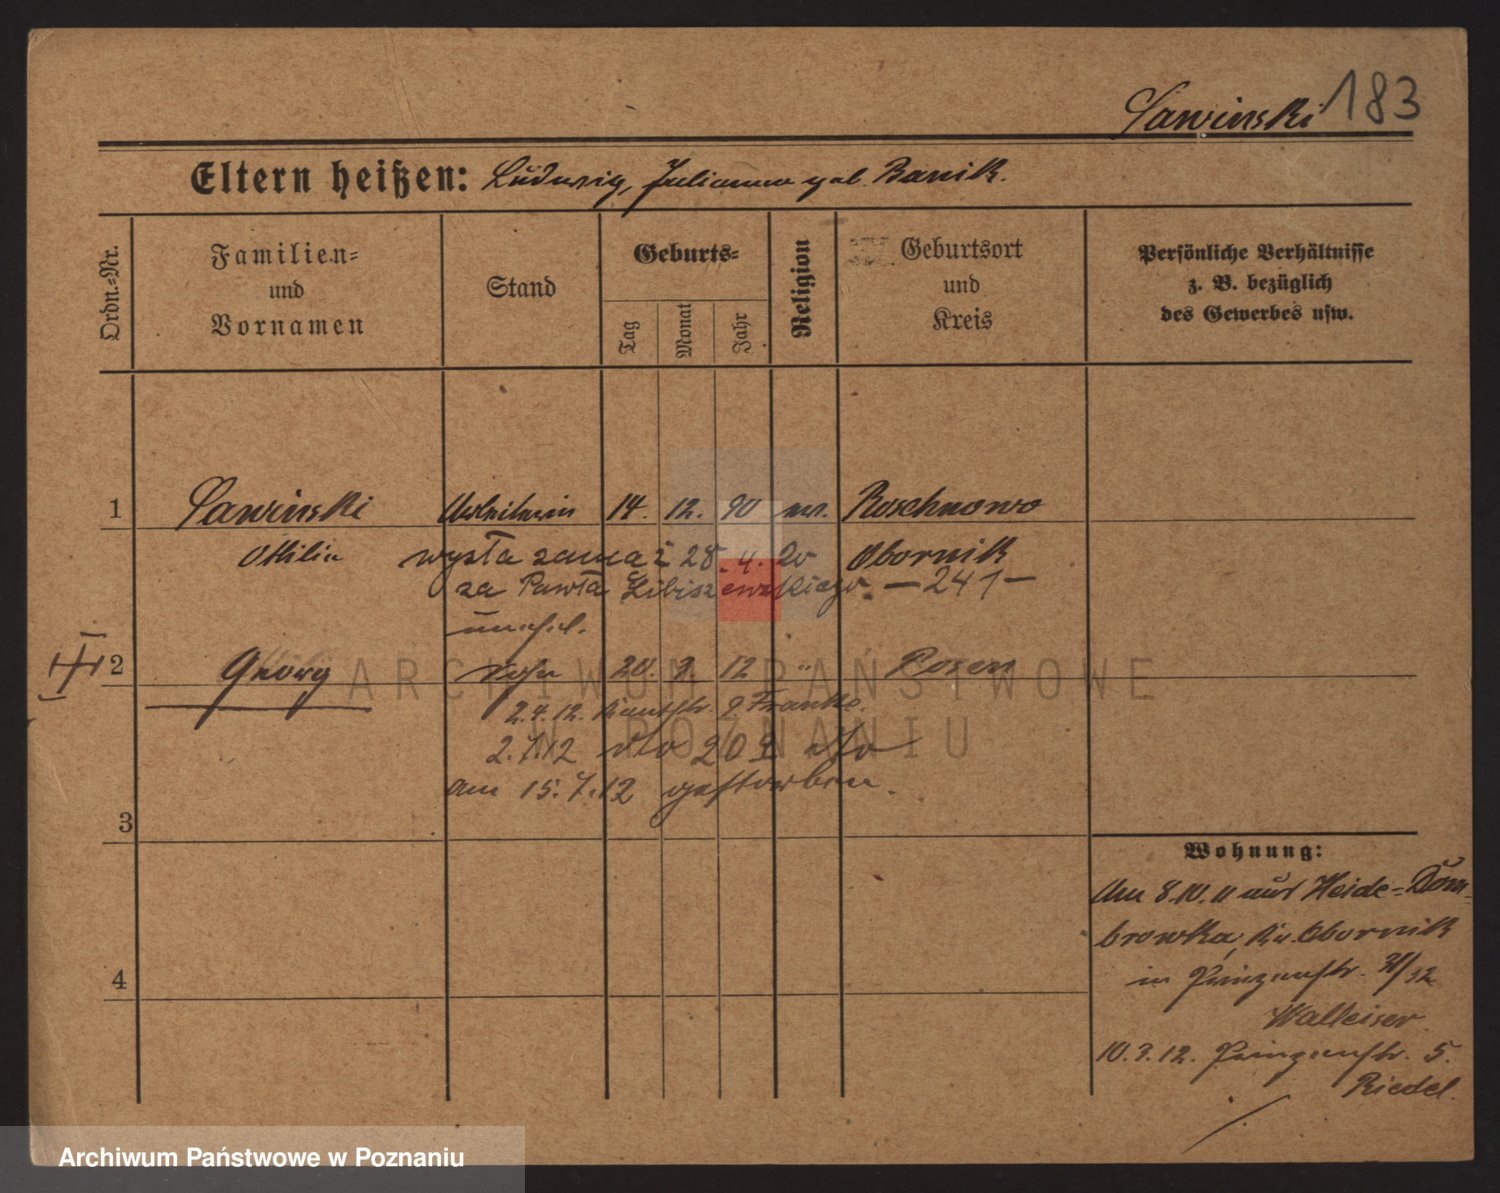 Sawinski 183
Eltern heißen: Ludwig, Julianna geb. Banik.
Ordn.-Nr.
Familien- und Vornamen
Stand
Geburts-
Tag
Monat
Jahr
Religion
Geburtsort und Kreis
Persönliche Verhältnisse z. B. bezüglich des Gewerbes usw.
1 Sawinski Arbeiterin 14. 12. 90 ev. Roschnowo
Ottilie wyszła zamąż 28.4.20 Obornik
za Pawła Libiszewskiego. — 241 —
unehel.
2 Georg Sohn 20. 12 " Posen
2.4.12. 9 Franke.
2.7.12
am 15.7.12 gestorben.
3
4
Wohnung:
Am 8.10.11 aus Heide-Dom-
browka, Kr. Obornik
in Prinzenstr.
Walleiser
10.3.12. Prinzenstr. 5.
Riedel.
ARCHIWUM PAŃSTWOWE
W POZNANIU
Archiwum Państwowe w Poznaniu